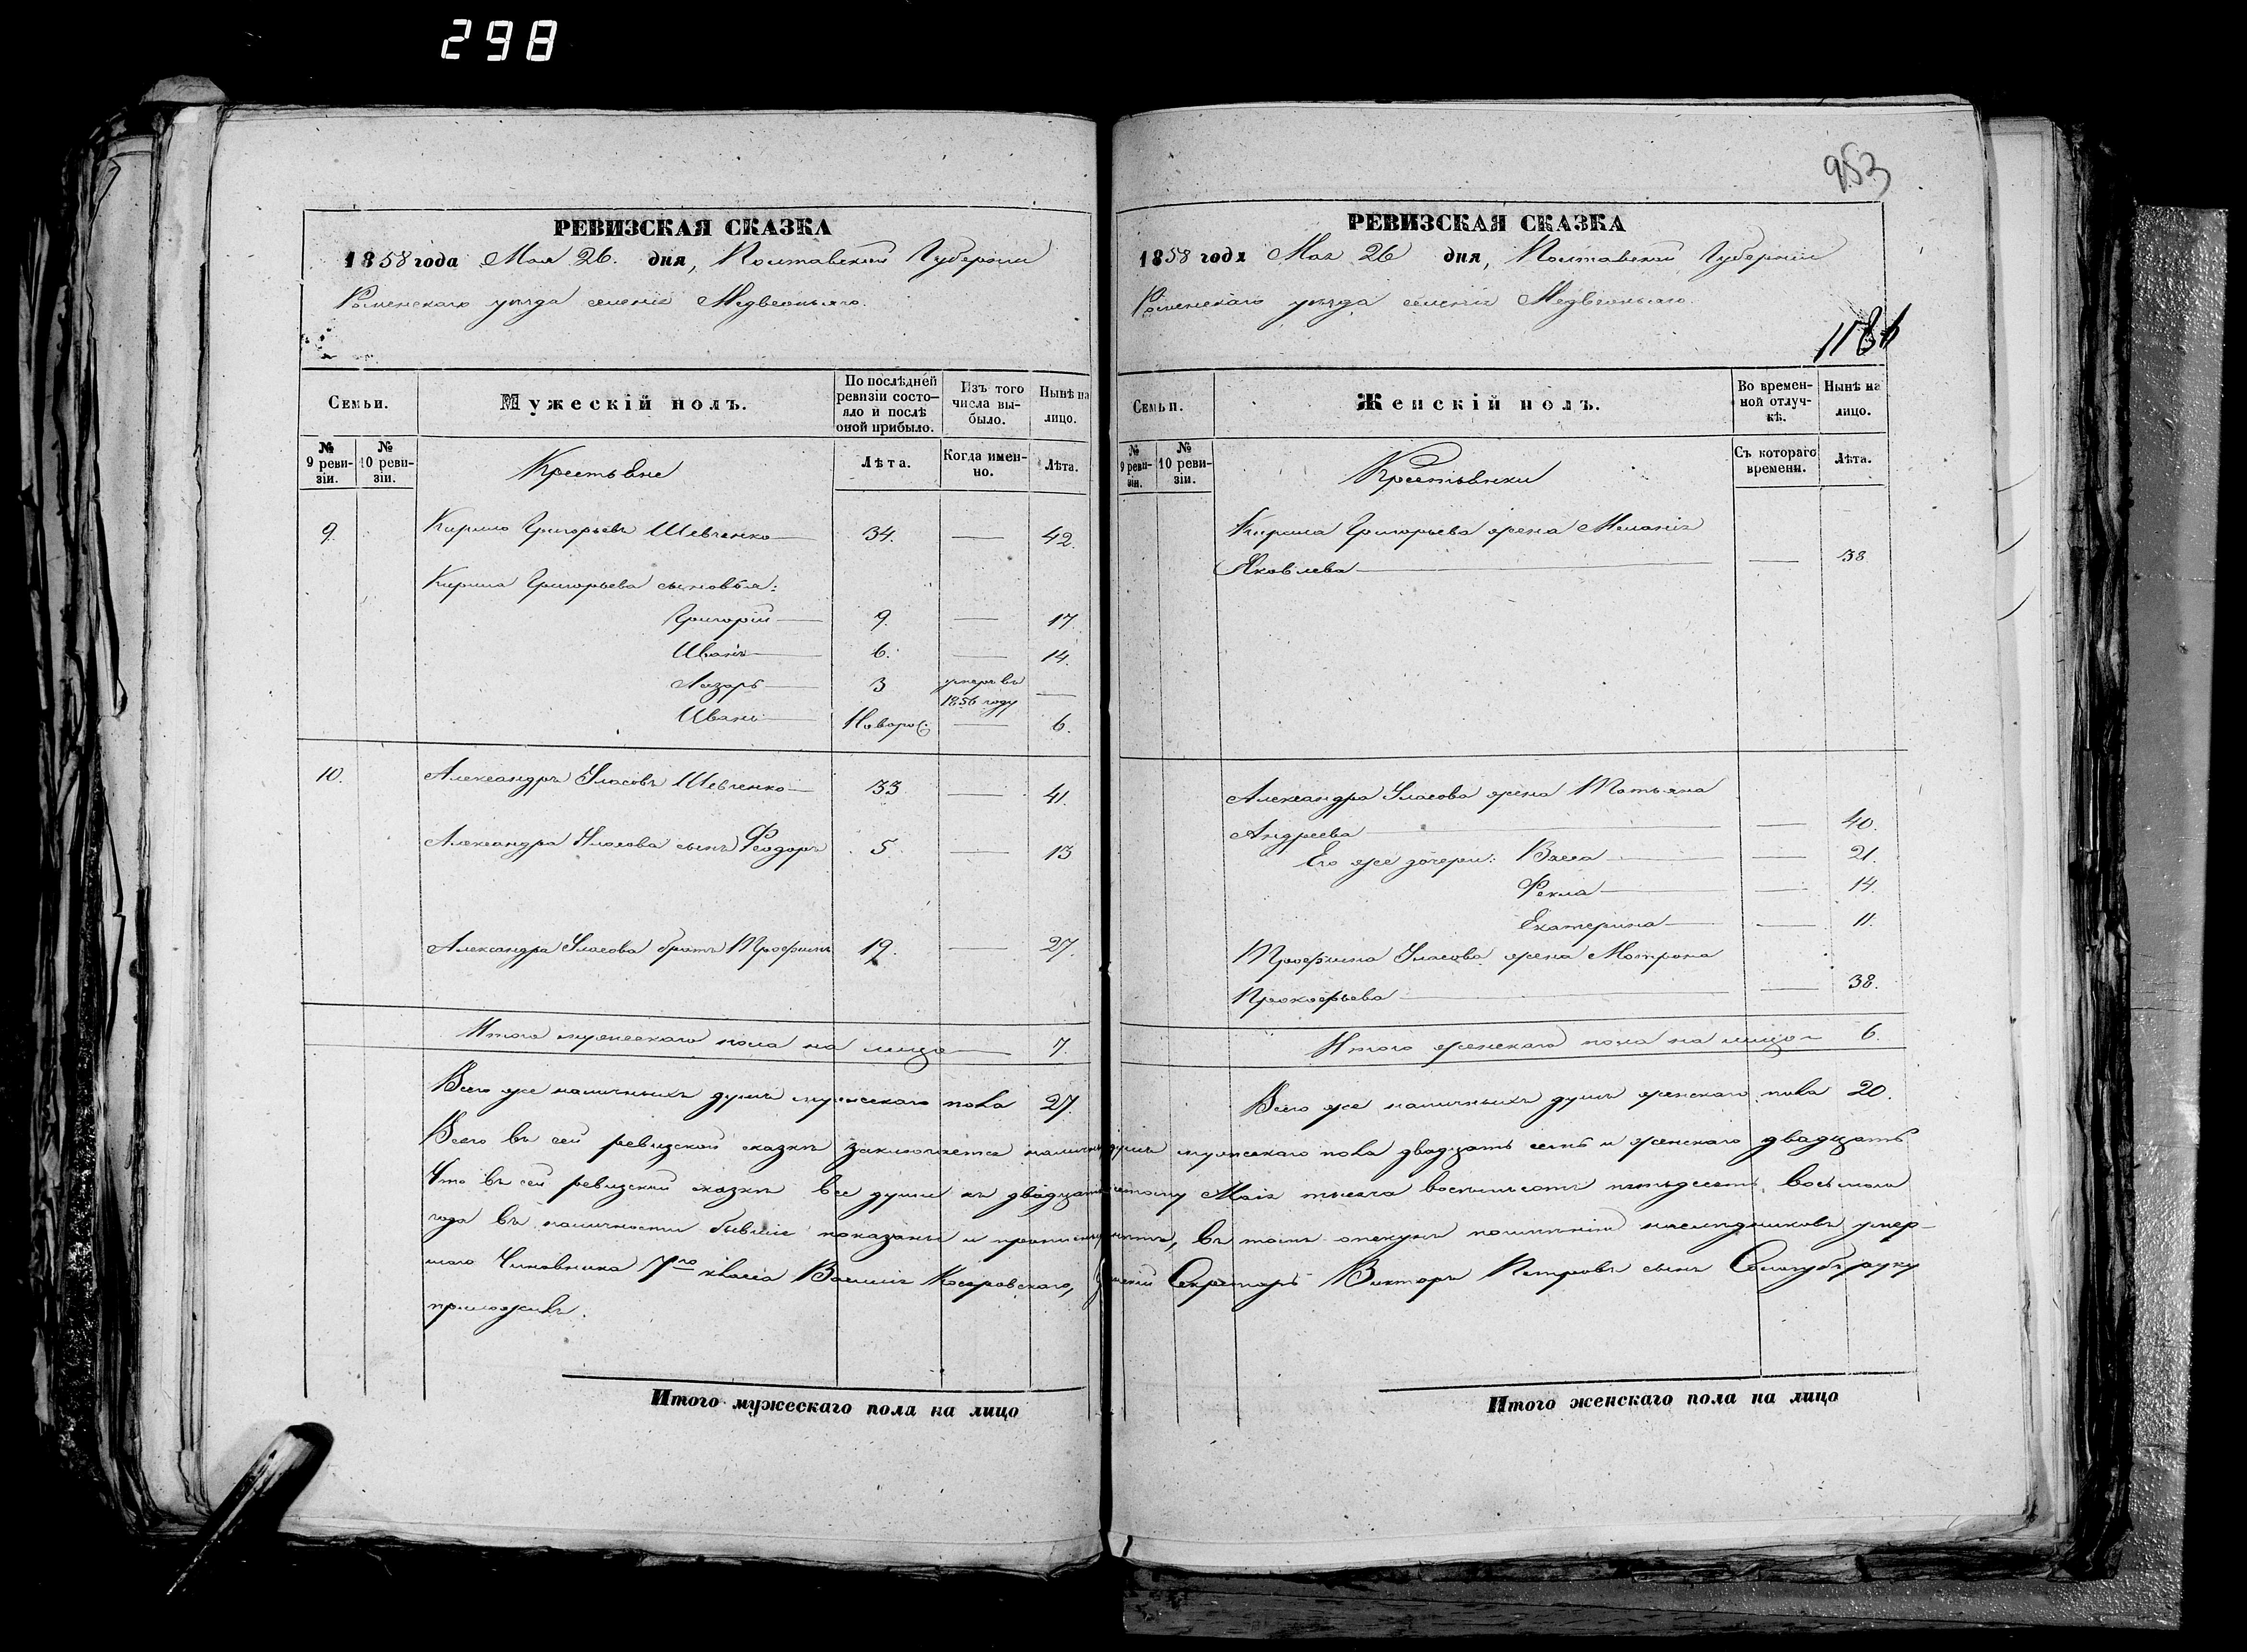 298
953
РЕВИЗСКАЯ СКАЗКА
1858 года Мая 26. дня, Полтавской Губернии
Роменскаго уѣзда селенія Медвежьяго.
Семьи.
Мужескій полъ.
По послѣдней ревизіи состояло и послѣ оной прибыло.
Изъ того числа выбыло.
Нынѣ на лицо.
№ 9 ревизіи.
№ 10 ревизіи.
Крестьяне
Лѣта.
Когда именно.
Лѣта.
9. Кирило Григорьевъ Шевченко — 34. — 42.
Кирила Григорьева сыновья:
Григорій — 9. — 17.
Иванъ — 6. — 14.
Лазарь — 3 умеръ въ 1856 году —
Иванъ — Новорož. — 6.
10. Александръ Уласовъ Шевченко — 33 — 41.
Александра Уласова сынъ Феодоръ 5 — 13
Александра Уласова братъ Трофимъ 19. — 27.
Итого мужескаго пола на лицо — 7.
Всего же наличныхъ душъ мужескаго пола 27.
РЕВИЗСКАЯ СКАЗКА
1858 года Мая 26 дня, Полтавской Губерніи
Роменскаго уѣзда селенія Медвежьяго.
Семьи.
Женскій полъ.
Во временной отлучкѣ.
Нынѣ на лицо.
№ 9 ревизіи.
№ 10 ревизіи.
Крестьянки
Съ котораго времени.
Лѣта.
Кирила Григорьева жена Меланія
Яковлева — — 38
Александра Уласова жена Татьяна
Андреева — — 40.
Его же дочери: Васса — — 21.
Фекла — — 14.
Екатерина — — 11.
Трофима Уласова жена Мотрона
Прокофьева — — 38.
Итого женскаго пола на лицо — 6.
Всего же наличныхъ душъ женскаго пола 20.
Всего въ сей ревизской сказкѣ заключается наличныхъ душъ мужескаго пола двадцать семь и женскаго двадцать
Что въ сей ревизской сказкѣ все души къ двадцать шестому Мая тысяча восемьсотъ пятьдесятъ восьмого
года въ наличности бывшіе показаны и прописныхъ нѣтъ, въ томъ опекунъ имѣнія наслѣдниковъ умер-
шаго Чиновника 7го класса Василія Косаровскаго, Секретарь Викторъ Петровъ сынъ Солугубъ руку
приложилъ.
Итого мужескаго пола на лицо
Итого женскаго пола на лицо